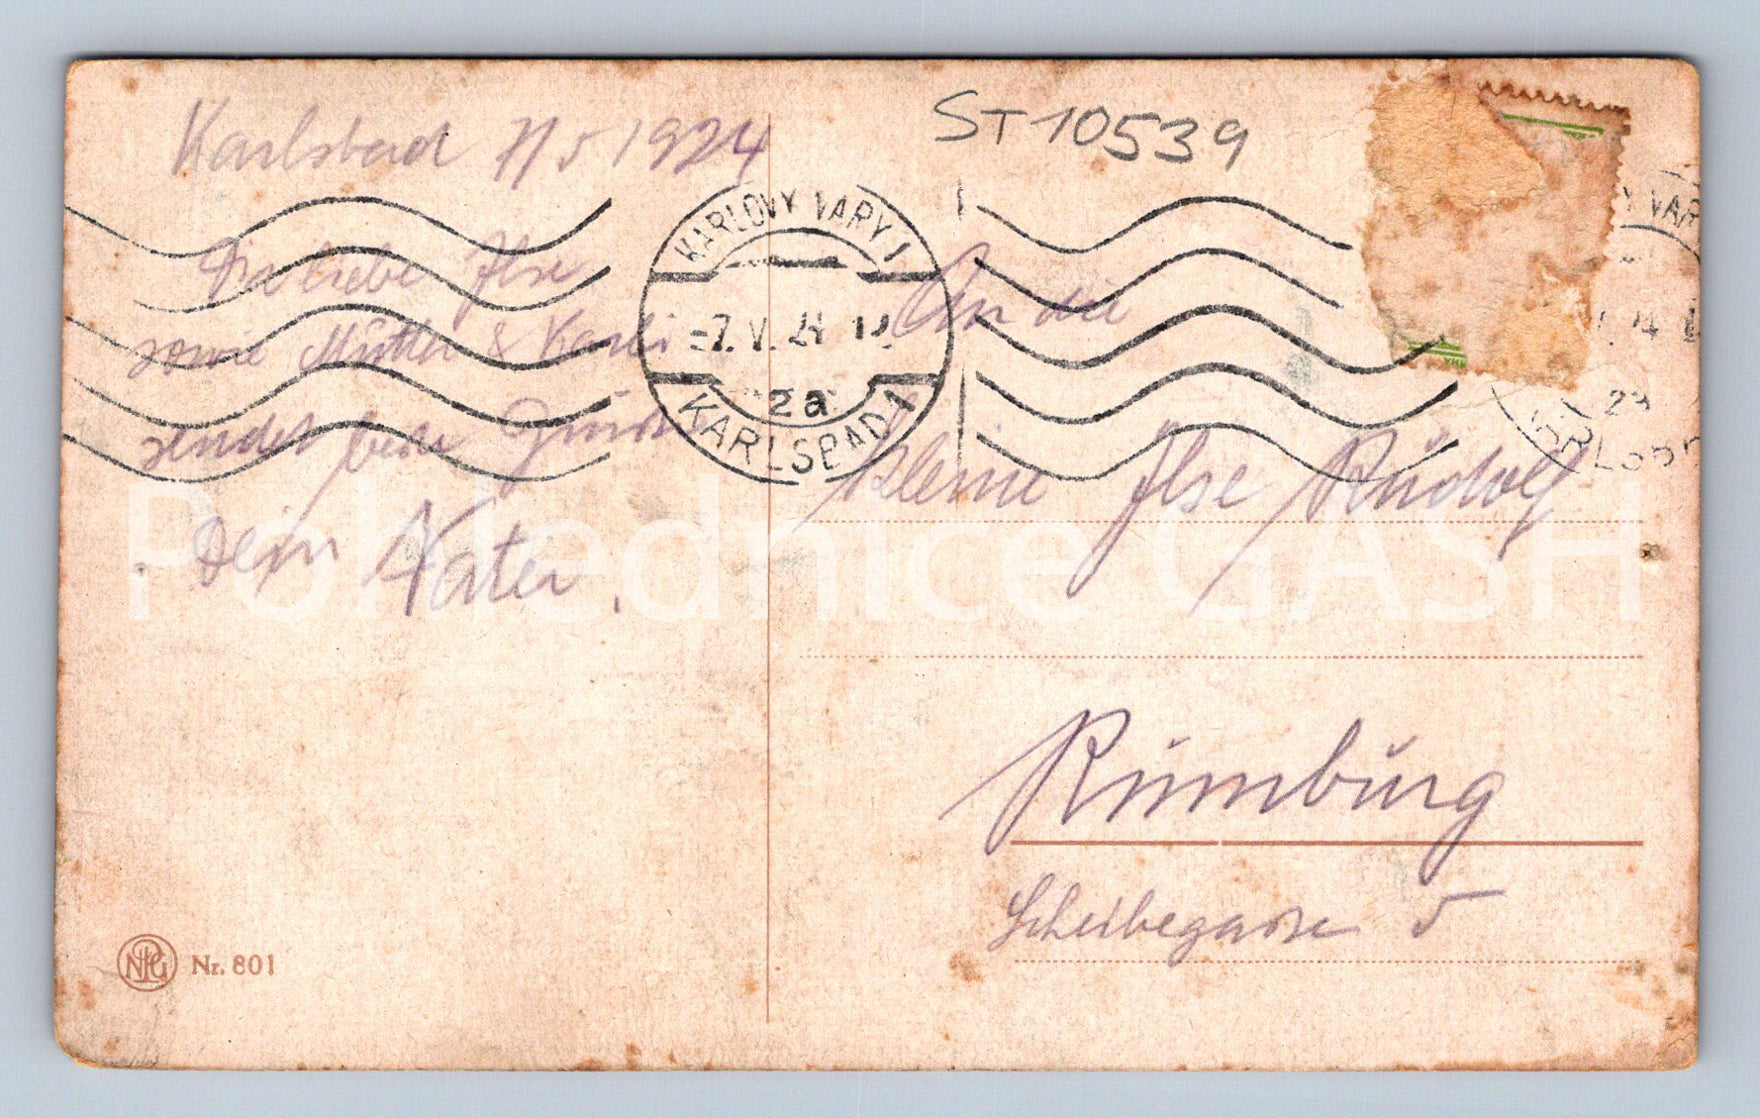 Karlsbad 7/5 1924
Dir liebe Ilse
sowie Mutter & Karli
sendet beste Grüsse
Dein Vater.
ST 10539
KARLOVY VARY 1
-7. V. 24
2a
KARLSBAD 1
An die
kleine Ilse Rudolf
Rumburg
Scheibegasse 5
NPG Nr. 801
Pohlednice GASH